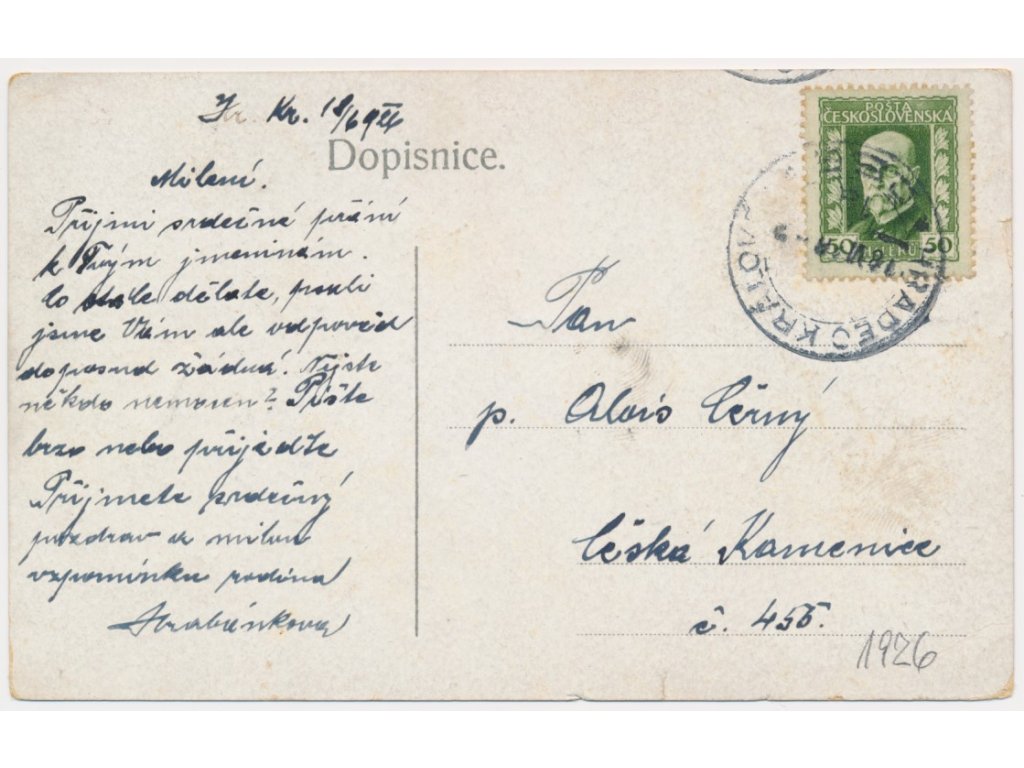 Hr. Kr. 18/6 926
Dopisnice.
Milení.
Přijmi srdečné přání
k Tvým jmeninám.
Co stále děláte, psali
jsme Vám ale odpověd
doposud žádná. Nejste
někdo nemocen? Pište
brzo nebo přijedte
Přijmete srdečný
pozdrav a milou
vzpomínku rodina
Hrabánkova
POŠTA
ČESKOSLOVENSKÁ
50 50
HRADEC KRÁLOVÉ
Pan
p. Alois Černý
Česká Kamenice
č. 455.
1926